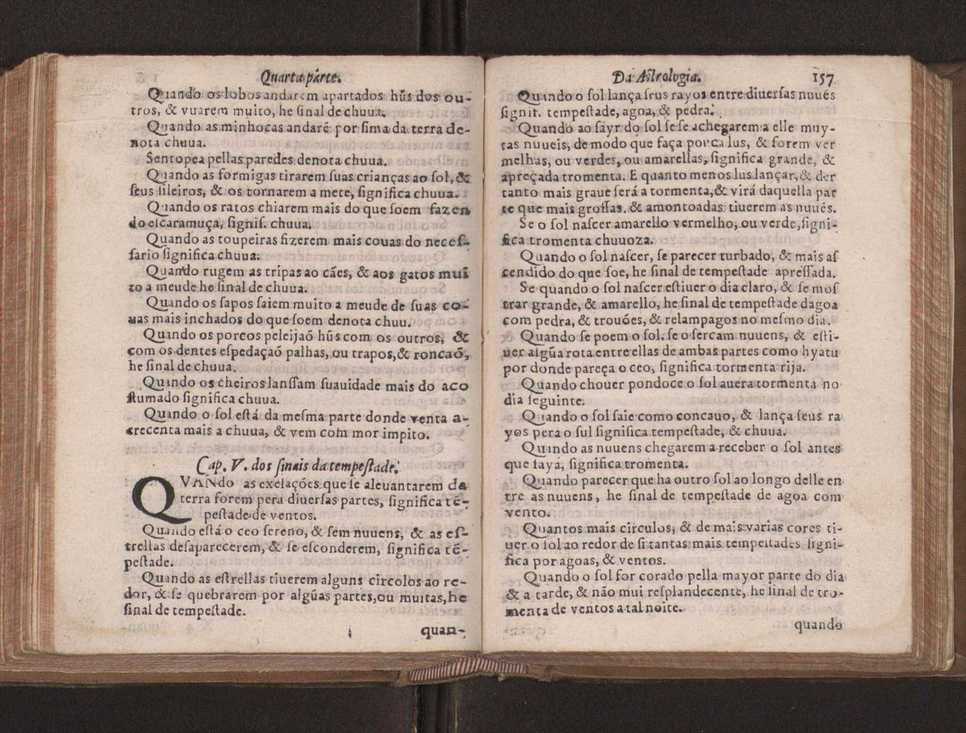 Quarta parte.
Quando os lobos andarem apartados hũs dos ou-
tros, & vuarem muito, he sinal de chuua.
Quando as minhocas andarẽ por sima da terra de-
nota chuua.
Sentopea pellas paredes denota chuua.
Quando as formigas tirarem suas crianças ao sol, &
seus sileiros, & os tornarem a mete, significa chuua.
Quando os ratos chiarem mais do que soem fazen
do escaramuça, signif. chuua.
Quando as toupeiras fizerem mais couas do neces-
sario significa chuua.
Quando rugem as tripas ao cães, & aos gatos mui
to a meude he sinal de chuua.
Quando os sapos saiem muito a meude de suas co-
uas mais inchados do que soem denota chuu.
Quando os porcos peleijaõ hũs com os outros, &
com os dentes espedaçaõ palhas, ou trapos, & roncaõ,
he sinal de chuua.
Quando os cheiros lanssam suauidade mais do aco
stumado significa chuua.
Quando o sol está da mesma parte donde venta a-
crecenta mais a chuua, & vem com mor impito.
Cap. V. dos sinais da tempestade.
QVANdo as exelações que se aleuantarem da
terra forem pera diuersas partes, significa tẽ-
pestade de ventos.
Quando está o ceo sereno, & sem nuuens, & as es-
trellas desaparecerem, & se esconderem, significa tẽ-
pestade.
Quando as estrellas tiuerem alguns circolos ao re-
dor, & se quebrarem por algũas partes, ou muitas, he
sinal de tempestade.
quan-
Da Astrologia. 157
Quando o sol lança seus rayos entre diuersas nuuẽs
signif. tempestade, agoa, & pedra.
Quando ao sayr do sol se se achegarem a elle muy-
tas nuueis, de modo que faça porca lus, & forem ver
melhas, ou verdes, ou amarellas, significa grande, &
apreçada tromenta. E quanto menos lus lançar, & der
tanto mais graue será a tormenta, & virá daquella par
te que mais grossas, & amontoadas tiuerem as nuuẽs.
Se o sol nascer amarello vermelho, ou verde, signi-
fica tromenta chuuoza.
Quando o sol nascer, se parecer turbado, & mais as
cendido do que soe, he sinal de tempestade apressada.
Se quando o sol nascer estiuer o dia claro, & se mos
trar grande, & amarello, he sinal de tempestade dagoa
com pedra, & trouões, & relampagos no mesmo dia.
Quando se poem o sol, se o sercam nuuens, & esti-
uer algũa rota entre ellas de ambas partes como hyatu
por donde pareça o ceo, significa tormenta rija.
Quando chouer pondoce o sol auera tormenta no
dia seguinte.
Quando o sol saie como concauo, & lança seus ra
yos pera o sul significa tempestade, & chuua.
Quando as nuuens chegarem a receber o sol antes
que saya, significa tromenta.
Quando parecer que ha outro sol ao longo delle en
tre as nuuens, he sinal de tempestade de agoa com
vento.
Quantos mais circulos, & de mais varias cores ti-
uer o sol ao redor de si tantas mais tempestades signi-
fica por agoas, & ventos.
Quando o sol for corado pella mayor parte do dia
& a tarde, & não mui resplandecente, he sinal de tro-
menta de ventos a tal noite.
quando